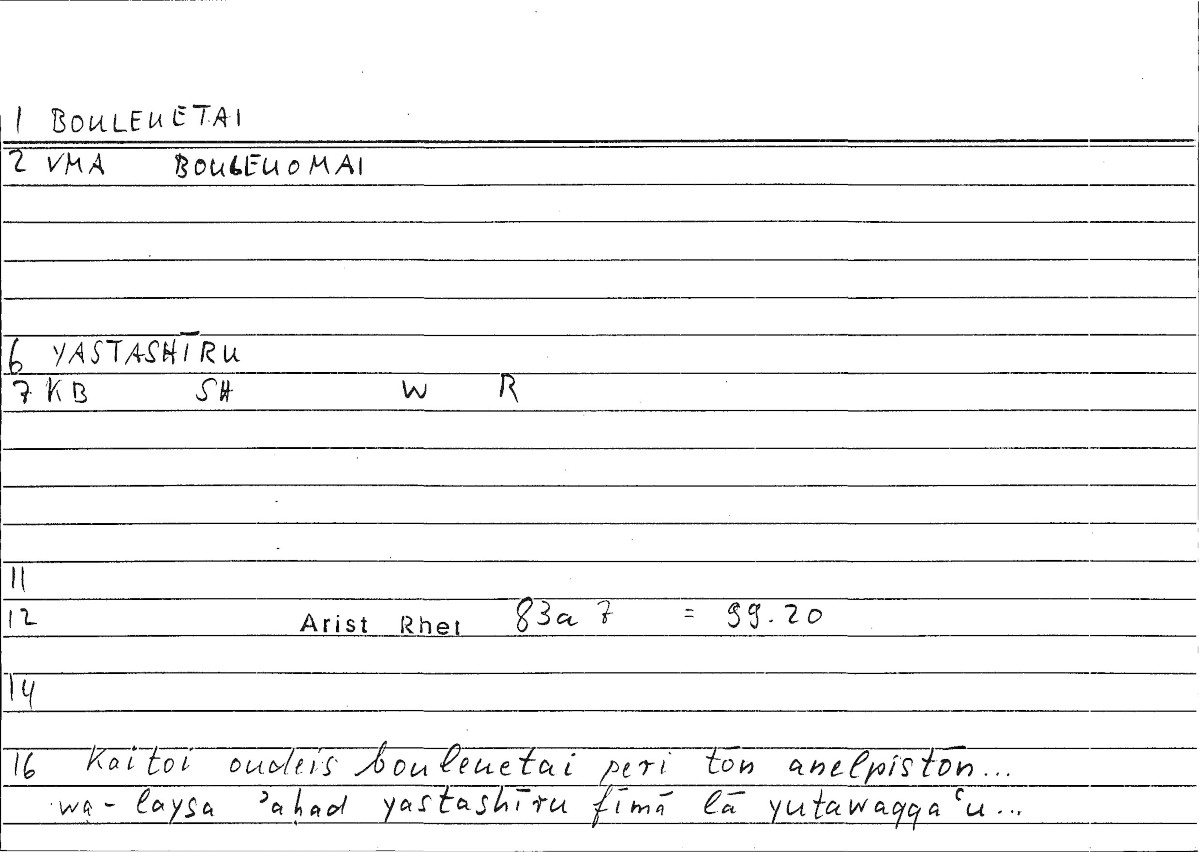 1 BOULEUETAI
2 VMA BOULEUOMAI
6 YASTASHĪRU
7 KB SH W R
11
12 Arist Rhet 83a 7 = 99.20
14
16 Kaitoi oudeis bouleuetai peri tōn anelpistōn...
wa-laysa ʾaḥad yastashīru fīmā lā yutawaqqaʿu...